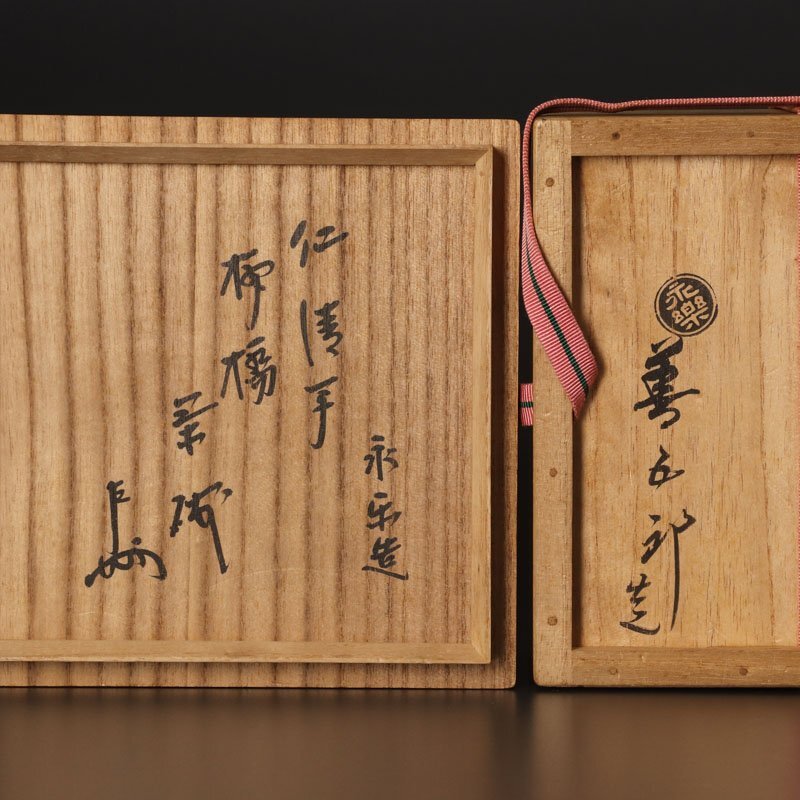 永楽造
仁清手
柳橋
茶碗
永樂
善五郎造